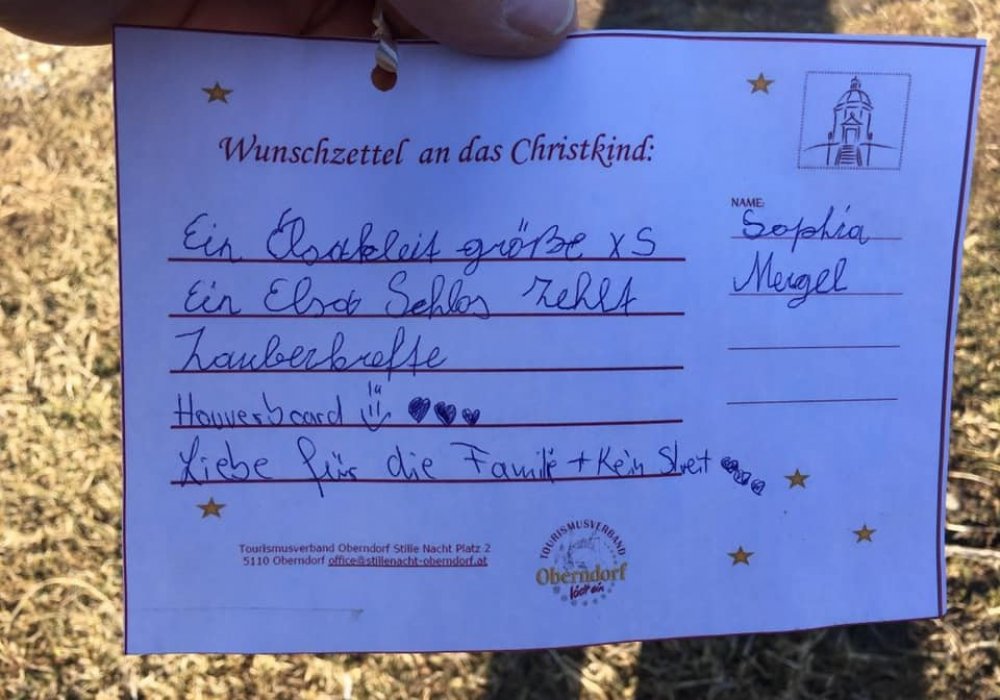 Wunschzettel an das Christkind:
Ein Elsakleit größe XS
Ein Elsa Schlos Zehlt
Zauberkrefte
Houverboard
Liebe für die Familie + Kein Streit
NAME:
Sophia
Mergel
Tourismusverband Oberndorf Stille Nacht Platz 2
5110 Oberndorf office@stillenacht-oberndorf.at
TOURISMUSVERBAND
Oberndorf
lädt ein